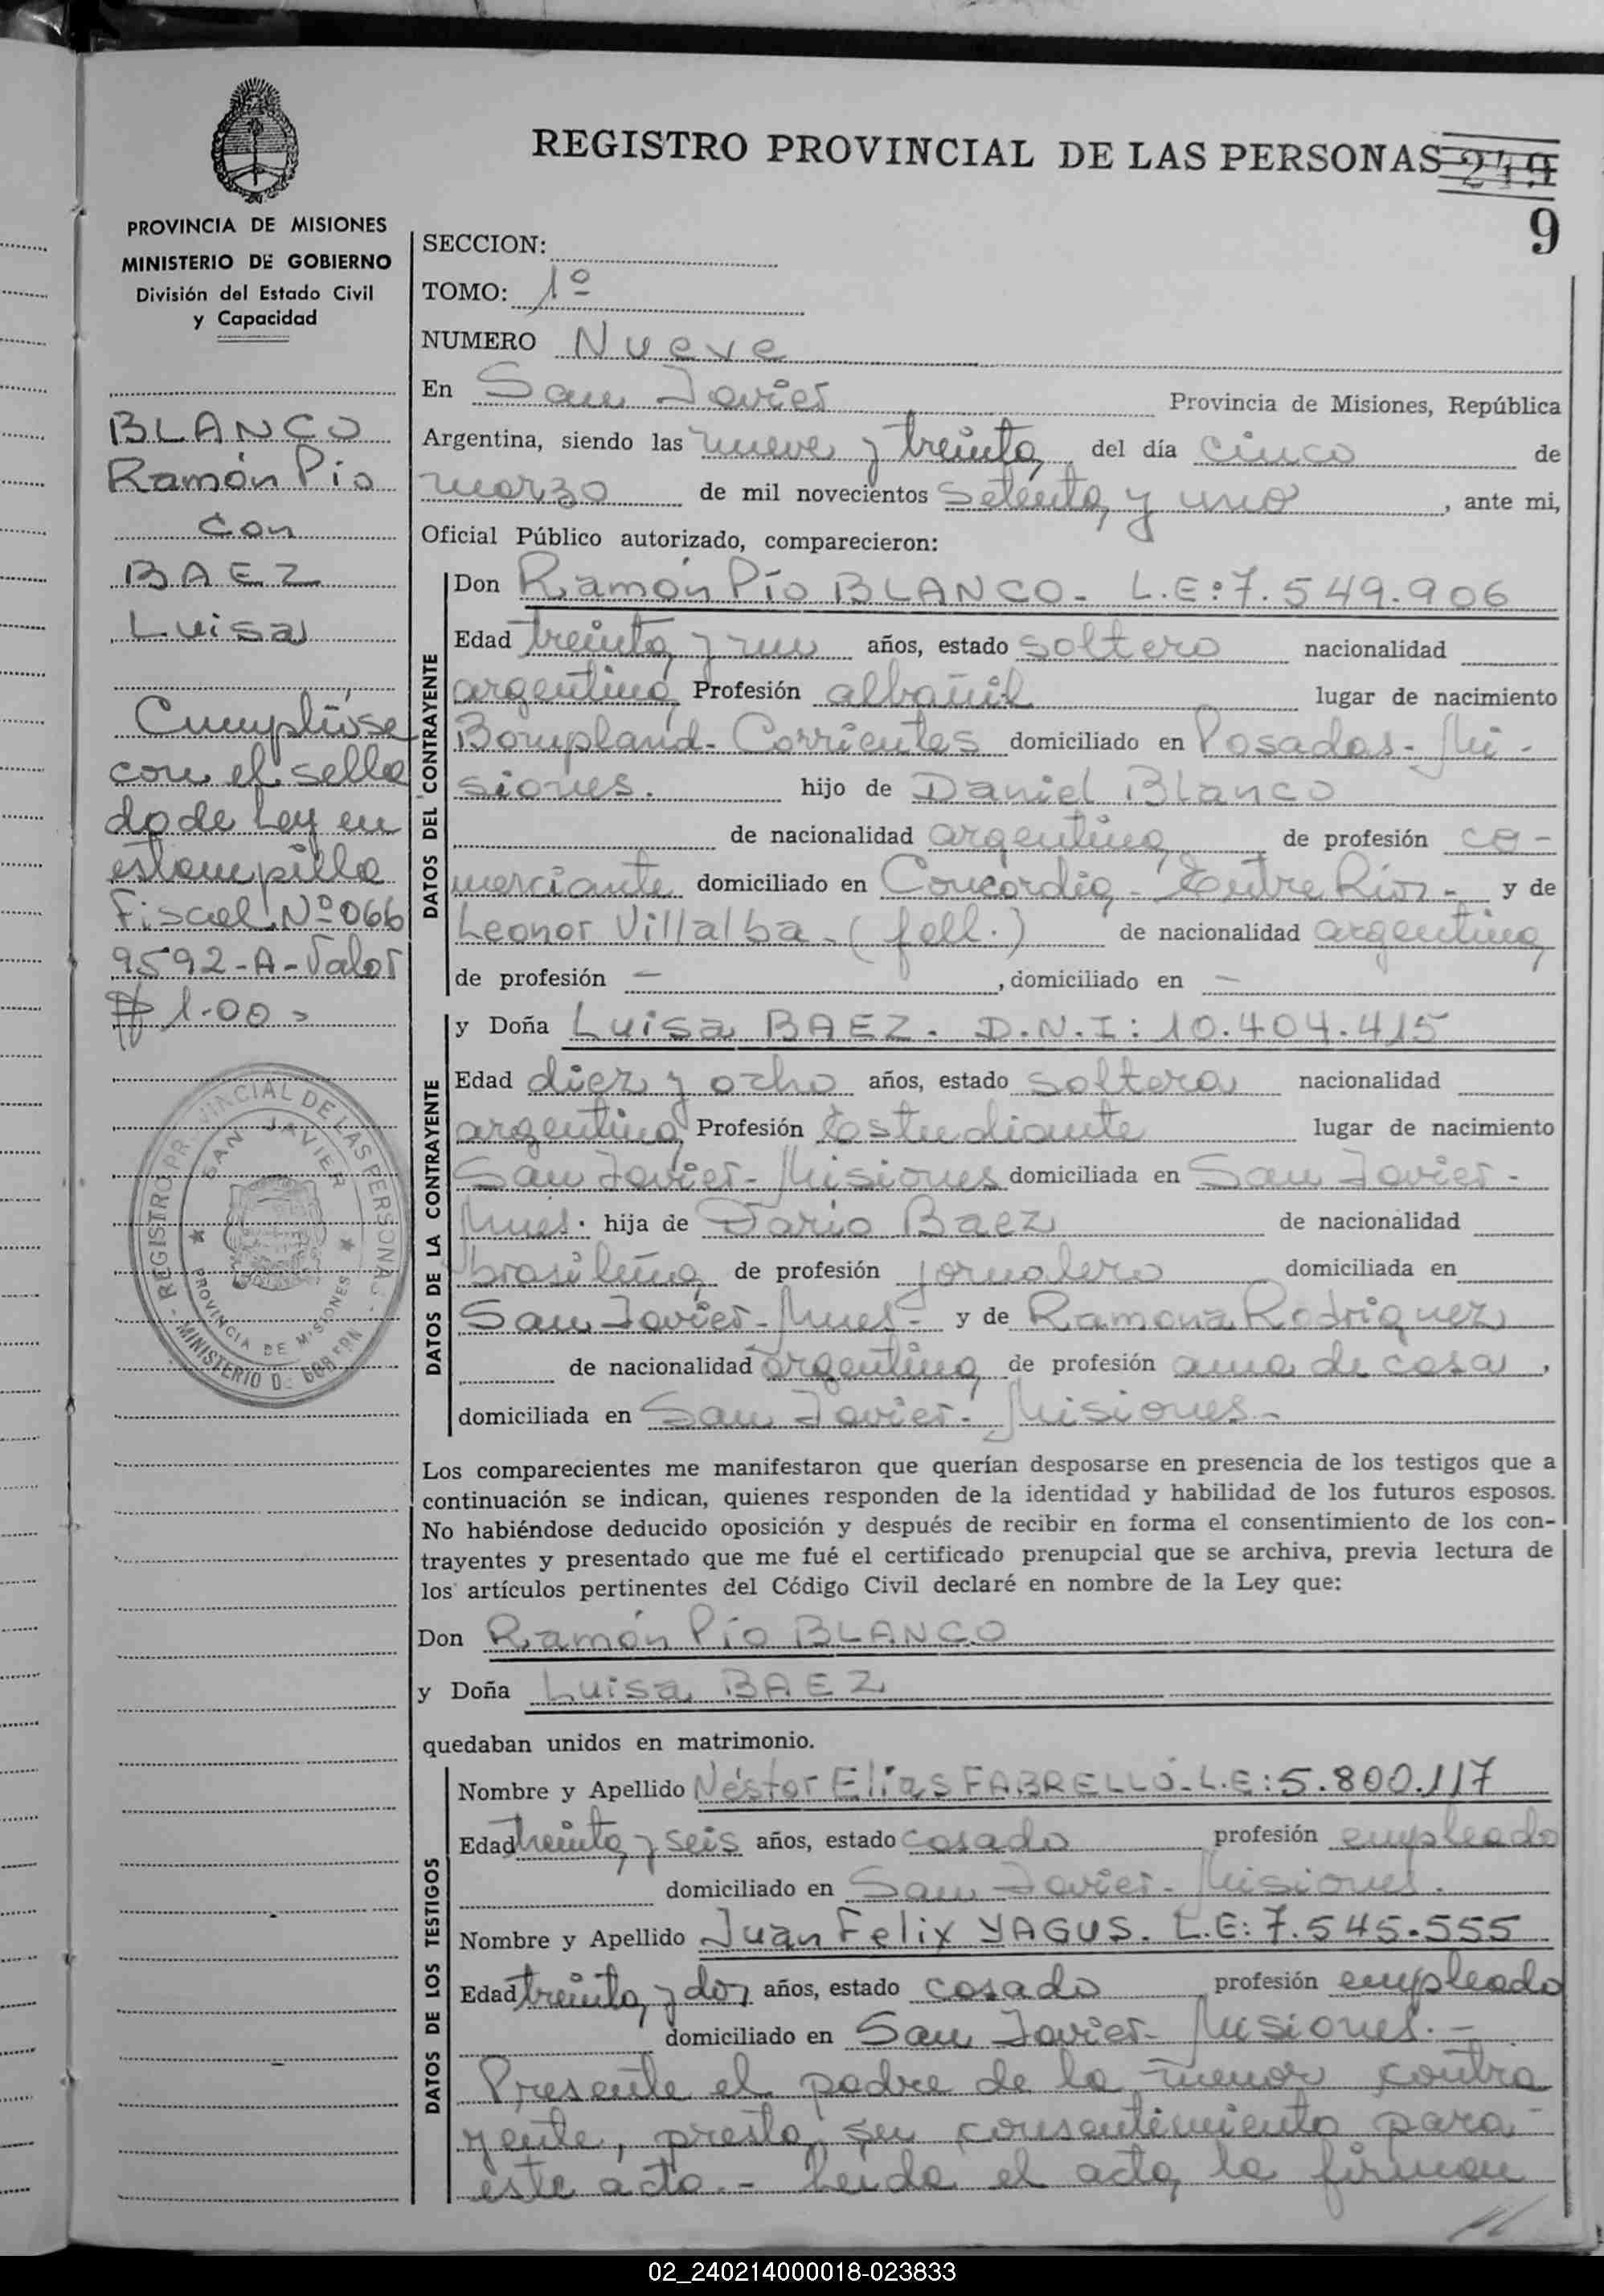 REGISTRO PROVINCIAL DE LAS PERSONAS 249
9
PROVINCIA DE MISIONES
MINISTERIO DE GOBIERNO
División del Estado Civil
y Capacidad
BLANCO
Ramón Pío
con
BAEZ
Luisa
Cumplióse
con el sella
do de Ley en
estampilla
Fiscal Nº 066
9592-A-Valor
$ 1.00=
REGISTRO PROVINCIAL DE LAS PERSONAS - MINISTERIO DE GOBERN. -
SAN JAVIER
PROVINCIA DE MISIONES
SECCION:
TOMO: 1º
NUMERO Nueve
En San Javier Provincia de Misiones, República
Argentina, siendo las nueve y treinta del día cinco de
marzo de mil novecientos setenta y uno, ante mi,
Oficial Público autorizado, comparecieron:
DATOS DEL CONTRAYENTE
Don Ramón Pío BLANCO- L.E:7.549.906
Edad treinta y un años, estado soltero nacionalidad
argentina Profesión albañil lugar de nacimiento
Bompland-Corrientes domiciliado en Posadas-Mi-
siones. hijo de Daniel Blanco
de nacionalidad argentina de profesión co-
merciante domiciliado en Concordia-Entre Ríos- y de
Leonor Villalba-(fall.) de nacionalidad argentina
de profesión —, domiciliado en —
DATOS DE LA CONTRAYENTE
y Doña Luisa BAEZ- D.N.I: 10.404.415
Edad diez y ocho años, estado soltera nacionalidad
argentina Profesión Estudiante lugar de nacimiento
San Javier-Misiones domiciliada en San Javier-
Mnes. hija de Dario Baez de nacionalidad
brasileña de profesión jornalero domiciliada en
San Javier-Mnes- y de Ramona Rodriguez
de nacionalidad argentina de profesión ama de casa,
domiciliada en San Javier-Misiones-
Los comparecientes me manifestaron que querían desposarse en presencia de los testigos que a
continuación se indican, quienes responden de la identidad y habilidad de los futuros esposos.
No habiéndose deducido oposición y después de recibir en forma el consentimiento de los con-
trayentes y presentado que me fué el certificado prenupcial que se archiva, previa lectura de
los artículos pertinentes del Código Civil declaré en nombre de la Ley que:
Don Ramón Pío BLANCO
y Doña Luisa BAEZ
quedaban unidos en matrimonio.
DATOS DE LOS TESTIGOS
Nombre y Apellido Néstor Elias FABRELLO-L.E:5.800.117
Edad treinta y seis años, estado casado profesión empleado
domiciliado en San Javier-Misiones.
Nombre y Apellido Juan Felix YAGUS. L.E: 7.545.555
Edad treinta y dos años, estado casado profesión empleado
domiciliado en San Javier-Misiones.-
Presente el padre de la menor contra
yente, presta su consentimiento para
este acto.- Leida el acta, la firman
02_240214000018-023833